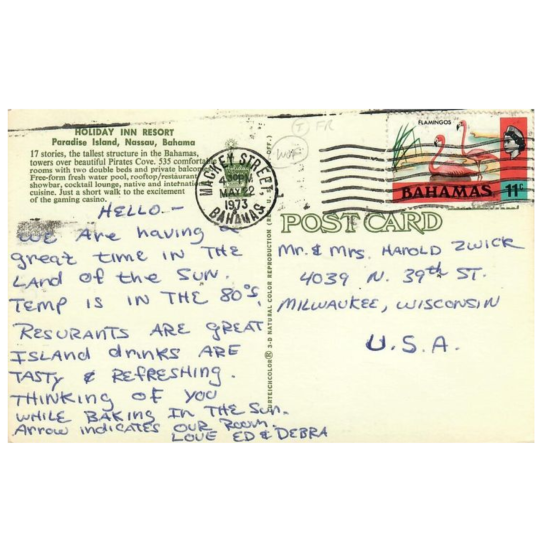 HOLIDAY INN RESORT
Paradise Island, Nassau, Bahama
17 stories, the tallest structure in the Bahamas,
towers over beautiful Pirates Cove. 535 comfortable
rooms with two double beds and private balcon
Free-form fresh water pool, rooftop/restaurant
showbar, cocktail lounge, native and internation
cuisine. Just a short walk to the excitement
of the gaming casino.
MACKEY STREET,
PM
MAY 22
1973
BAHAMAS
FLAMINGOS
BAHAMAS 11c
HELLO -
We Are having a
great time in THE
LAND of the SUN.
Temp is in THE 80's,
RESURANTS ARE GREAT
ISLAND drinks ARE
TASTY & REFRESHING.
THINKING OF YOU
WHILE BAKING IN THE SUN.
Arrow indicates OUR Room.
LOVE ED & DEBRA
POST CARD
Mr. & Mrs. HAROLD ZWICK
4039 N. 39th ST.
MILWAUKEE, WISCONSIN
U.S.A.
CURTEICHCOLOR® 3-D NATURAL COLOR REPRODUCTION